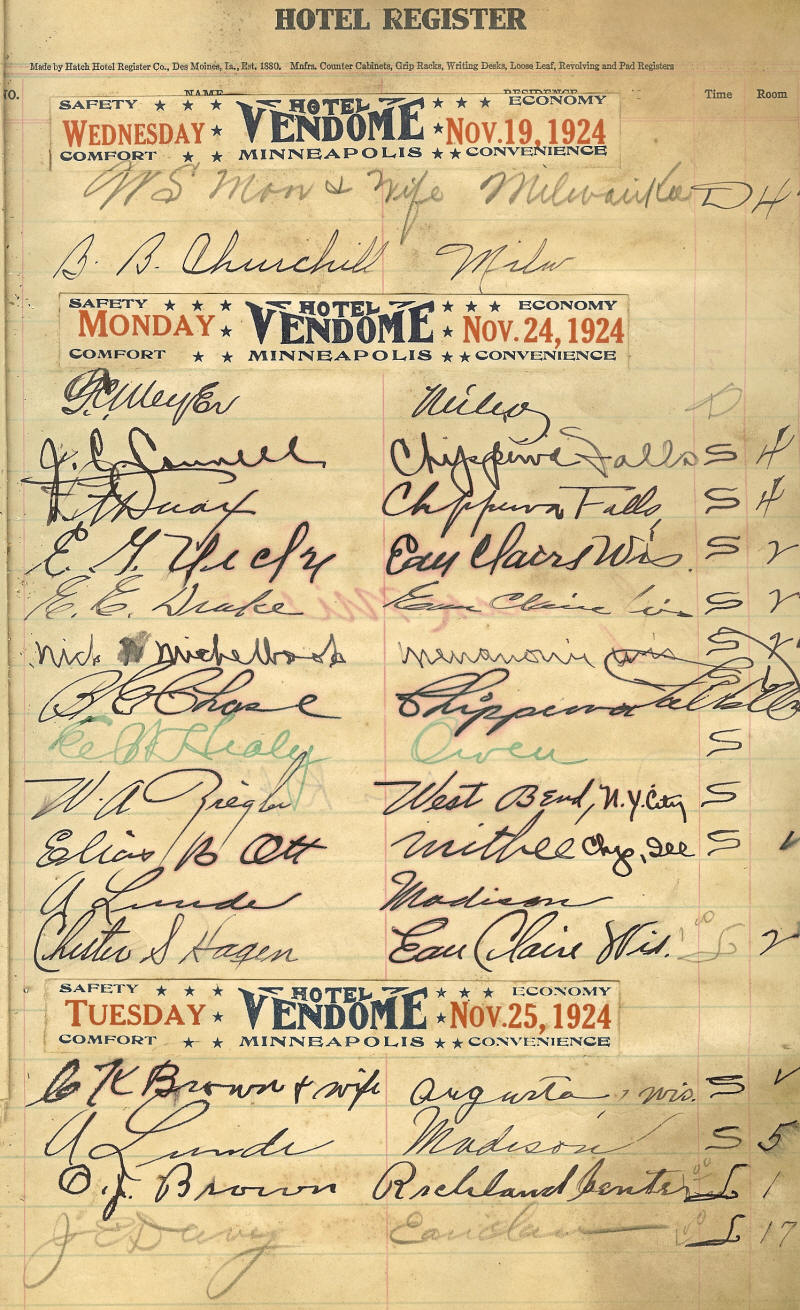 HOTEL REGISTER
Made by Hatch Hotel Register Co., Des Moines, Ia., Est. 1880. Mnfrs. Counter Cabinets, Grip Racks, Writing Desks, Loose Leaf, Revolving and Pad Registers
NO. NAME RESIDENCE Time Room
SAFETY HOTEL ECONOMY
WEDNESDAY VENDOME NOV. 19, 1924
COMFORT MINNEAPOLIS CONVENIENCE
W S Moon & Wife Milwaukee D 4
B. B. Churchill Milw
SAFETY HOTEL ECONOMY
MONDAY VENDOME NOV. 24, 1924
COMFORT MINNEAPOLIS CONVENIENCE
Meyer D
J. C. Chippewa Falls S 4
Duax Chippewa Falls S 4
E. G. Eau Claire Wis. S 2
E. E. Drake Eau Claire Wis S 2
Nick Menomonie Wis S 2
B E Chase Chippewa Falls
Healy Owen S
W. A Ziegler West Bend, N.Y. City S
Elias B Ott Withee S
A Lunde Madison
Chester S Hagen Eau Claire Wis. 2
SAFETY HOTEL ECONOMY
TUESDAY VENDOME NOV. 25, 1924
COMFORT MINNEAPOLIS CONVENIENCE
C K Brown & wife Augusta, Wis. S
A Lunde Madison S 5
O. J. Brown Richland Center 1
J E Davy Eau Claire 17